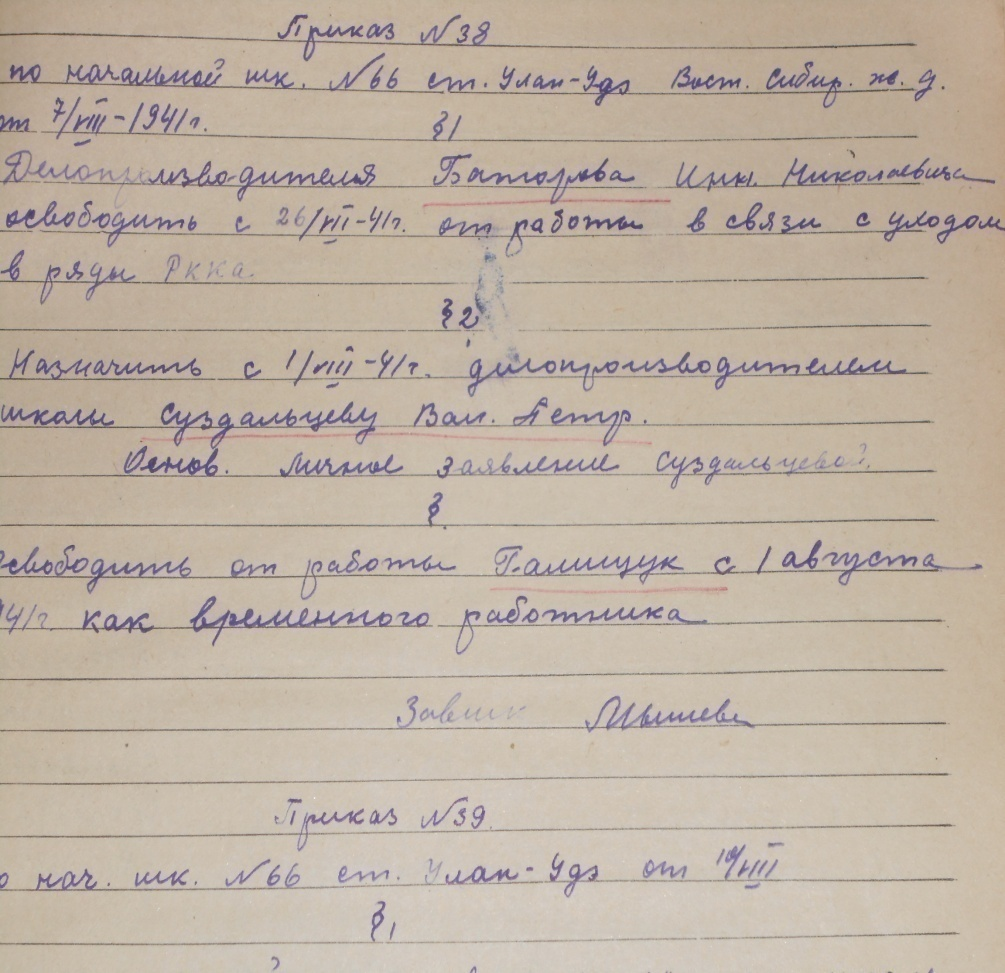 Приказ N38
по начальной шк. N66 ст. Улан-Удэ Вост. Сибир. ж. д.
от 7/VIII-1941г.
§1
Делопроизводителя Баторова Инн. Николаевича
освободить с 26/VII-41г. от работы в связи с уходом
в ряды РККА.
§2
Назначить с 1/VIII-41г. делопроизводителем
школы Суздальцеву Вал. Петр.
Основ. личное заявление Суздальцевой.
§.
свободить от работы Галищук с 1 августа
41г как временного работника
Завшк
Приказ N39.
о нач. шк. N66 ст. Улан-Удэ от 10/VIII
§1